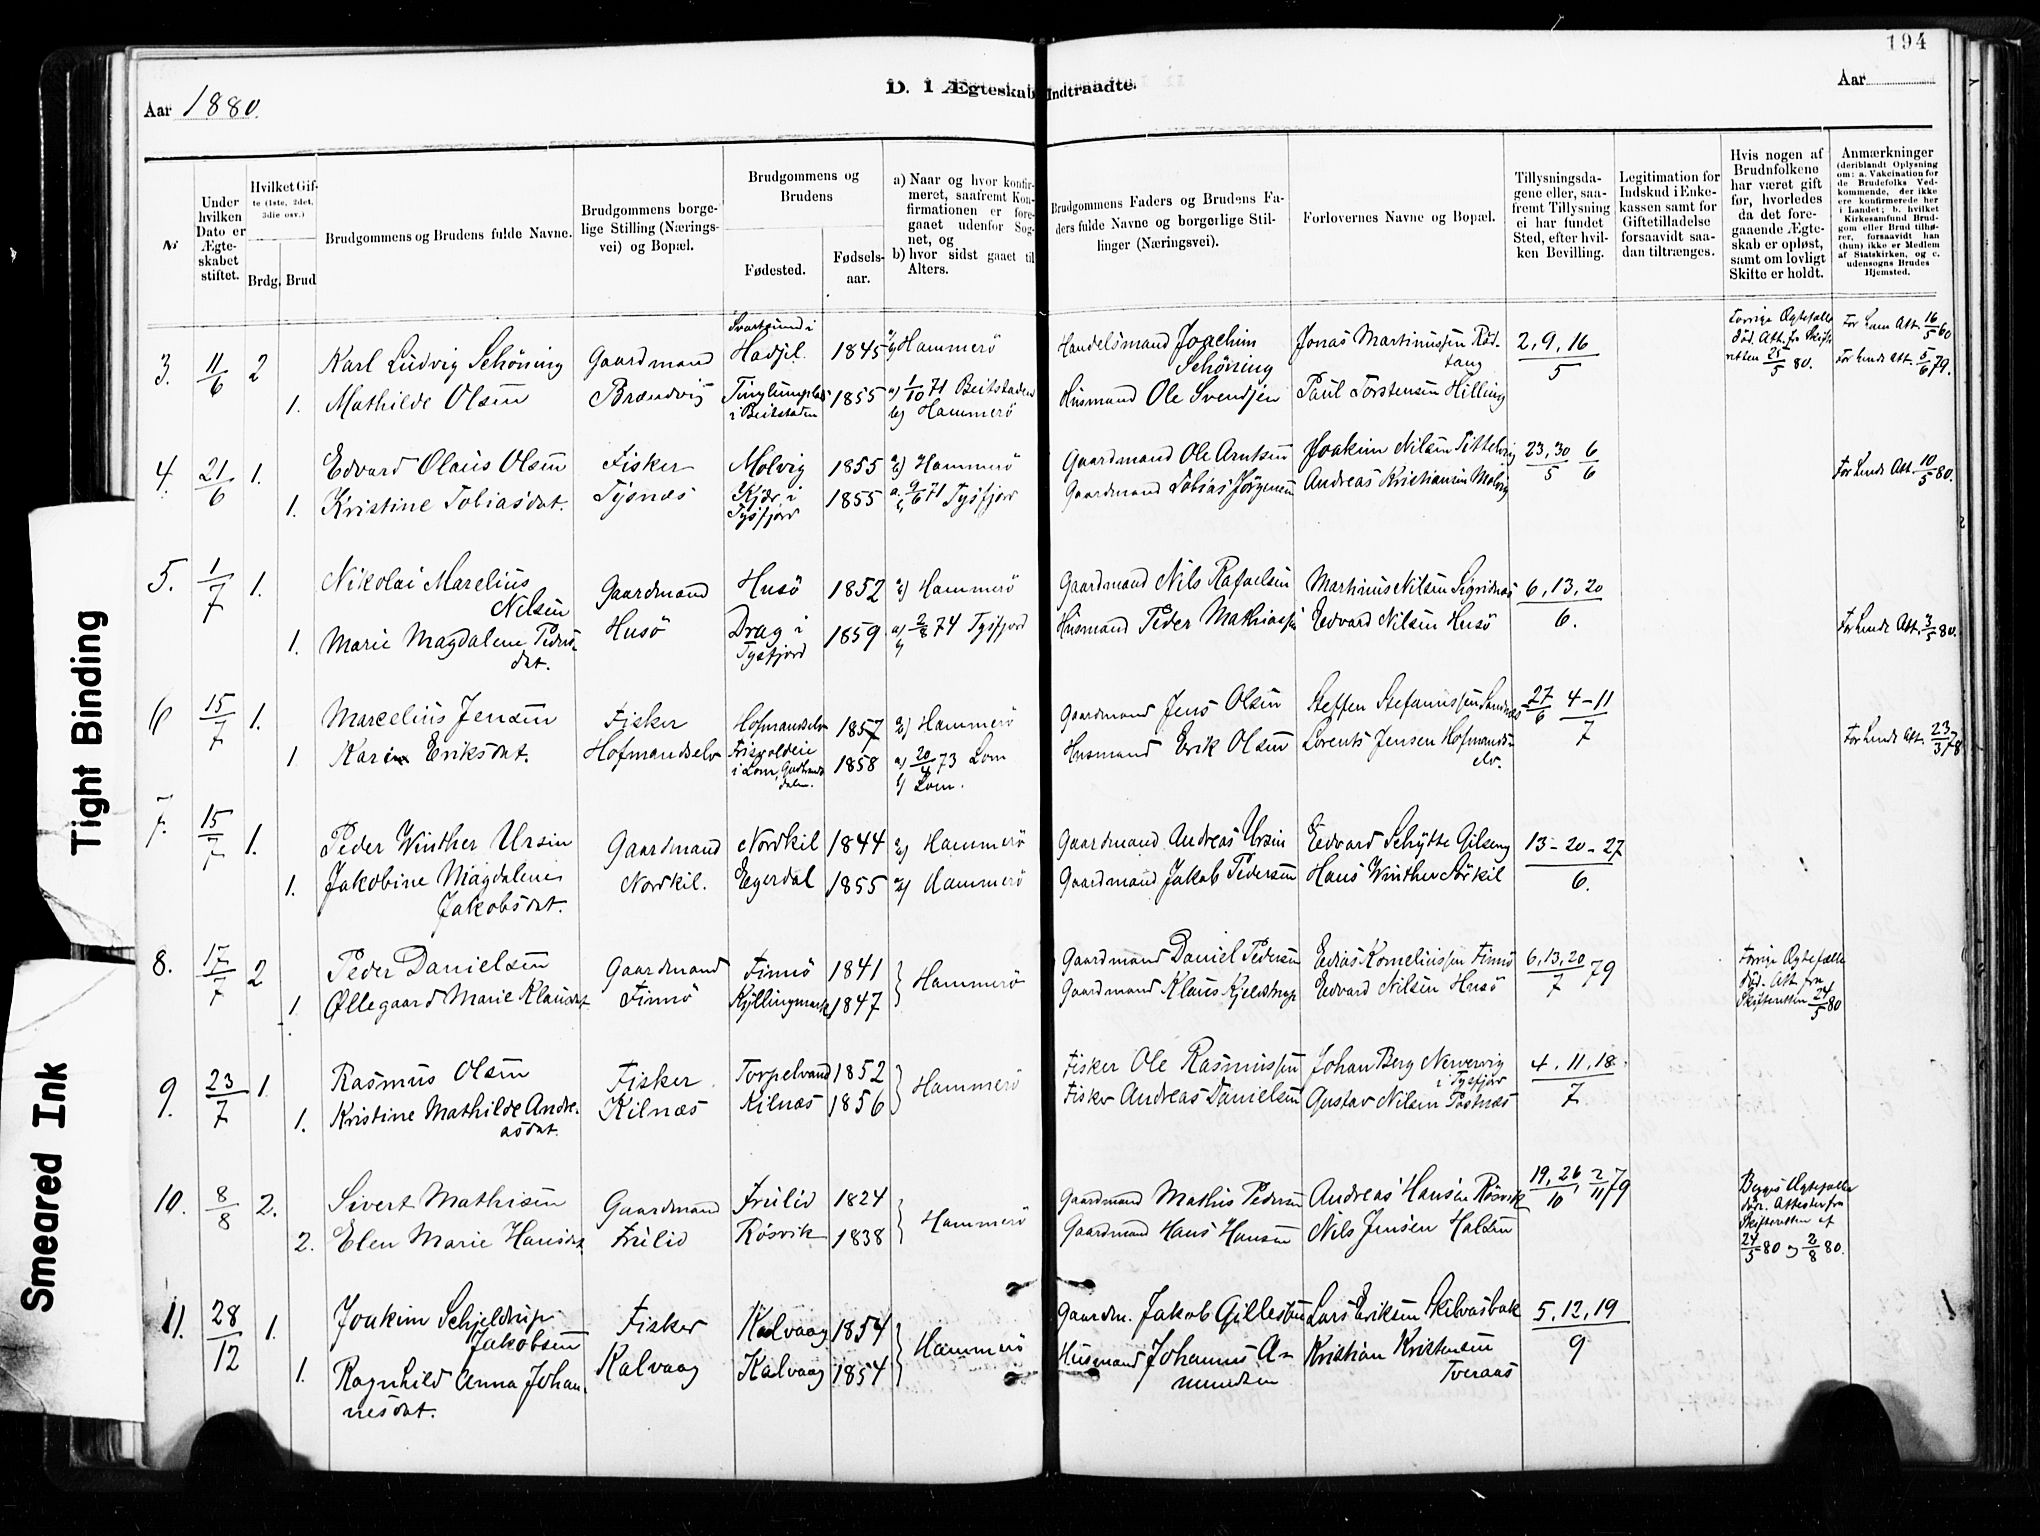 194
D. I Ægteskab Indtraadte.
Aar 1880.
Aar
Nr
Under hvilken Dato er Ægteskabet stiftet.
Hvilket Gifte (1ste, 2det, 3die osv.)
Brdg. Brud
Brudgommens og Brudens fulde Navne.
Brudgommens borgelige Stilling (Næringsvei) og Bopæl.
Brudgommens og Brudens
Fødested.
Fødselsaar.
a) Naar og hvor konfirmeret, saafremt Konfirmationen er foregaaet udenfor Sognet, og
b) hvor sidst gaaet til Alters.
Brudgommens Faders og Brudens Faders fulde Navne og borgerlige Stillinger (Næringsvei).
Forlovernes Navne og Bopæl.
Tillysningsdagene eller, saafremt Tillysning ei har fundet Sted, efter hvilken Bevilling.
Legitimation for Indskud i Enkekassen samt for Giftetilladelse forsaavidt saadan tiltrænges.
Hvis nogen af Brudnfolkene har været gift før, hvorledes da det foregaaende Ægteskab er opløst, samt om lovligt Skifte er holdt.
Anmærkninger
(deriblandt Oplysning om: a. Vakcination for de Brudefolks Vedkommende, der ikke ere konfirmerede her i Landet; b. hvilket Kirkesamfund Brudgom eller Brud tilhører, forsaavidt han (hun) ikke er Medlem af Statskirken, og c. udensogns Brudes Hjemsted.
3. 11/6 2 Karl Ludvig Schöning Gaardmand Hadsel. 1845 Hammerö Handelsmand Joachim Schöning Jonas Martinussen Rödtang 2, 9, 16/5 Forrige Ægtefælle död. Att. fr Skifteretten 25/5 80. Att. 16/5 60
1. Mathilde Olsen Brændvig i Beitstaden 1855 a) 1/10 71 Beitstaden b) Hammerö Husmand Ole Svendsen Paul Torstensen Hilling Att. 5/6 79.
4. 21/6 1. Edvard Olaus Olsen Fisker Molvig 1855 Hammerö Gaardmand Ole Arntsen Joakim Nilsen 23, 30/5 6/6
1. Kristine Tobiasdat. Tysnæs Kjær i Tysfjord 1855 a. 9/6 71 Tysfjor Gaardmand Tobias Jørgensen Andreas Kristiansen Molvig Att. 10/5 80.
5. 1/7 1. Nikolai Marelius Nilsen Gaardmand Husö 1852 Hammerö Gaardmand Nils Rafaelsen Martinus Nilsen Sigridnæs 6, 13, 20/6.
1. Marie Magdalene Pedersdat. Husö Drag i Tysfjord 1859 a) 2/8 74 Tysfjord Husmand Peder Mathiassen Edvard Nilsen Husö Att. 3/5 80.
6 15/7 1. Marcelius Jensen Fisker Hofmandselv 1857 Hammerö Gaardmand Jens Olsen Steffen Stefanussen Sandnæs 27/6 4-11/7
1. Karin Eriksdat. Hofmandselv i Lom, Gudbrandsdalen. 1858 a) 20/4 73 Lom b) Lom. Husmand Erik Olsen Lorents Jensen Hofmandselv. Att. 23/3 78
7. 15/7 1. Peder Winther Ursin Gaardmand Nordkil 1844 Hammerö Gaardmand Andreas Ursin Edvard Schytte Gilseng 13-20-27/6.
1. Jakobine Magdalene Jakobsdat. Nordkil. Egerdal 1855 Hammerö Gaardmand Jakob Pedersen Hans Winther Sörkil
8. 17/7 2 Peder Danielsen Gaardmand Finnö 1841 Hammerö Gaardmand Daniel Pedersen Edias Korneliussen Finnö 6, 13, 20/7 79 Forrige Ægtefælle död. Att. fra Skifteretten 24/5 80
1. Øllegaard Marie Klausdat Finnö Kyllingmark 1847 Gaardmand Klaus Kjeldstrup Edvard Nilsen Husö
9. 23/7 1. Rasmus Olsen Fisker Torpelvand 1852 Hammerö Fisker Ole Rasmussen Johan Berg Nevervig i Tysfjor 4, 11, 18/7.
1. Kristine Mathilde Andreasdat. Kilnæs Kilnæs 1856 Fisker Andreas Danielsen Gustav Nilsen
10. 8/8 2. Sivert Mathisen Gaardmand 1824 Hammerö Gaardmand Mathis Pedersen Andreas Hansen Rösvik 19, 26/10, 2/11 79 Begges Ægtefælle död. Attester fra Skifteretten af 24/5 80 og 2/8 80.
2. Elen Marie Hansdat Rösvik 1838 Gaardmand Hans Hansen Nils Jensen Halsen
11. 28/12 1. Joakim Schjeldrup Jakobsen Fisker Kalvaag 1854 Hammerö Gaardm. Jakob Gillesen Lars Eriksen Skilvasbak 5, 12, 19/9
1. Ragnhild Anna Johannesdat. Kalvaag Kalvaag 1854 Husmand Johannes Amundsen Kristian Kristensen Tveraas
Tight Binding
Smeared Ink